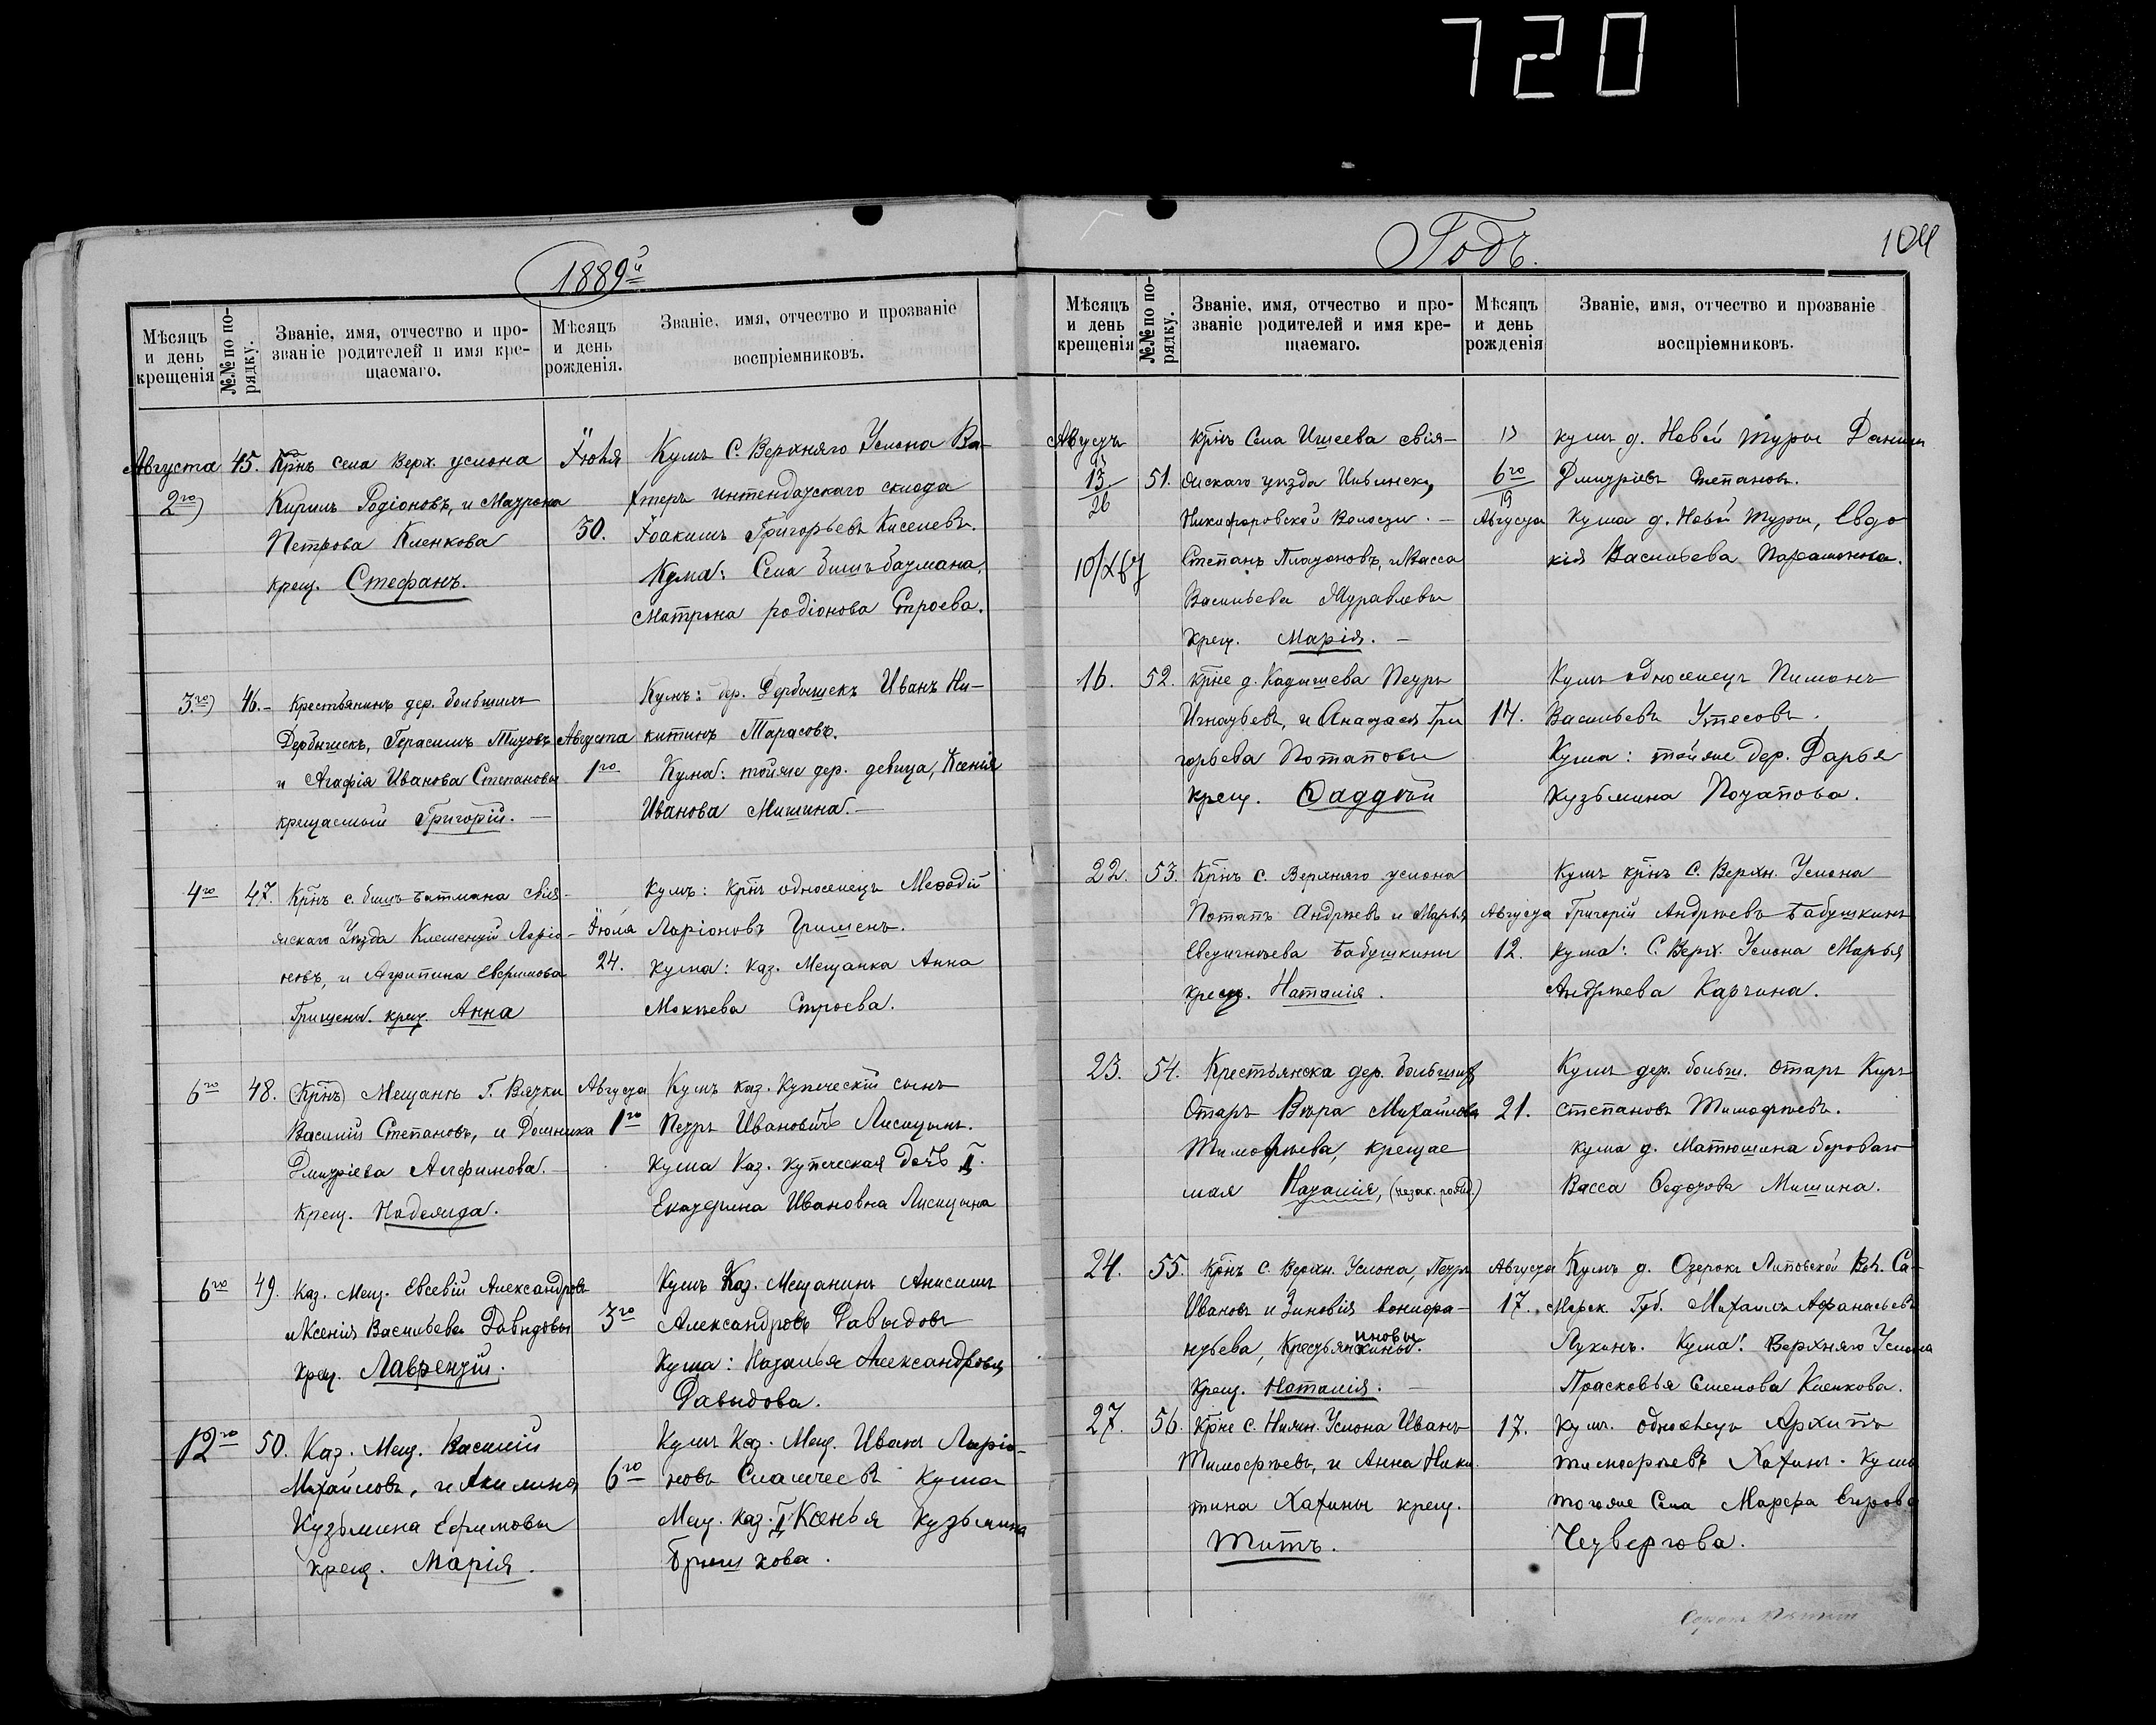 720
1889й
Мѣсяцъ и день крещенія
№№ по порядку.
Званіе, имя, отчество и про-
званіе родителей и имя кре-
щаемаго.
Мѣсяцъ и день рожденія.
Званіе, имя, отчество и прозваніе
воспріемниковъ.
Августа 2го 45.
Крнъ села Верх. услона
Кирилъ Родіоновъ, и Маурона
Петрова Кленкова
крещ. Стефанъ.
Іюля
30.
Кумъ С. Верхняго Услона Ва-
хтеръ интендаускаго склода
Іоакимъ Григорьевъ Киселевъ.
Кума: Села бимъ баумана,
Матрона родіонова Строева.
3го 46.
Крестьянинъ дер. большихъ
Дербышекъ, Герасимъ Титовъ
и Агафія Иванова Степановы
крещаемый Григорій.
Августа
1го
Кумъ: дер. Дербышекъ Иванъ Ни-
китинъ Тарасовъ.
Кума: тойже дер. девица, Ксенія
Иванова Мишина.
4го 47.
Крнъ с. бимъ батмана свія-
жскаго Уѣзда Клементій Ларіо-
новъ, и Агрипина Евфимова
Гришены. крещ. Анна
Іюля
24.
Кумъ: Крнъ односелецъ Мефодій
Ларіоновъ Гришенъ.
Кума: Каз. Мещанка Анна
Мокѣева Строева.
6го 48.
(Крнъ) Мещанъ Г. Вятки
Василій Степановъ, и Домника
Дмитріева Алферимова.
Крещ. Надежда.
Августа
1го
Кумъ Каз. Купеческій сынъ
Петръ Ивановичъ Лисицынъ.
Кума Каз. купеческая дочь
Екатерина Ивановна Лисицына
6го 49.
Каз. Мещ. Евсевій Александров
и Ксенія Васильева Давыдовы
Крещ. Лаврентій.
3го
Кумъ Каз. Мещанинъ Анисимъ
Александровъ Давыдовъ
Кума: Наталья Александровна
Давыдова.
12го 50.
Каз. Мещ. Василій
Михайловъ, и Акилина
Кузьмина Ефимовы
крещ. Марія.
6го
Кумъ Каз. Мещ. Иванъ Ларіо-
новъ Кума
Мещ. Каз. Ксенья Кузьмина
Брюшкова.
Годъ.
104
Мѣсяцъ и день крещенія
№№ по порядку.
Званіе, имя, отчество и про-
званіе родителей и имя кре-
щаемаго.
Мѣсяцъ и день рожденія
Званіе, имя, отчество и прозваніе
воспріемниковъ.
Августъ
13/26 51.
Крнъ Села Ишеева свія-
жскаго уѣзда Ивинской,
Никифоровской Волости.
Степанъ Платоновъ, и Васса
Васильева Журавлевы
Крещ. Марія.
6го
19
Августа
кумъ д. Новой Туры Данилъ
Дмитріевъ Степановъ.
Кума д. Новой Туры, Евдо
кія Васильева Парамонова.
16. 52.
крне д. Кадышева Петръ
Игнатьевъ, и Анастасія Гри
горьева Потаповы
крещ. Фаддѣй
14.
Кумъ односелецъ Пименъ
Васильевъ Утесовъ.
Кума: тойже дер. Дарья
Кузьмина Потапова.
22. 53.
Крнъ с. Верхняго услона
Потапъ Андрѣевъ и Марья
Евстигнѣева Бабушкины
крещ. Наталія.
Августа
12.
Кумъ крнъ С. Верхн. Услона
Григорій Андрѣевъ Бабушкинъ
кума: С. Верх. Услона Марья
Андрѣева Карчина.
23. 54.
Крестьянска дер. большихъ
Отаръ Вѣра Михайлова
Тимофѣева, крещае
мая Наталія, (незак. рожд.)
21.
Кумъ дер. больш. Отаръ Киръ
Степановъ Тимофѣевъ.
кума д. Матюшина
Васса Федорова Мишина.
24. 55.
Крнъ С. Верхн. Услона, Петръ
Ивановъ и Зиновія Вонифа-
нтьева, Крестьянкины.
иновы
Крещ. Наталія.
Августа
17.
Кумъ д. Озерокъ Липовской Вол. Са-
марск. Губ. Михаилъ Афанасьевъ
Лукинъ. Кума: Верхняго Услона
Прасковья Семенова Кленкова.
27. 56.
Крне с. Нижн. Услона Иванъ
Тимофѣевъ, и Анна Ники
тина Хахины крещ.
Титъ.
17.
Кумъ. односелецъ Архипъ
Тимофѣевъ Хахинъ. Кума
тогоже Села Марфа Егорова
Четвергова.